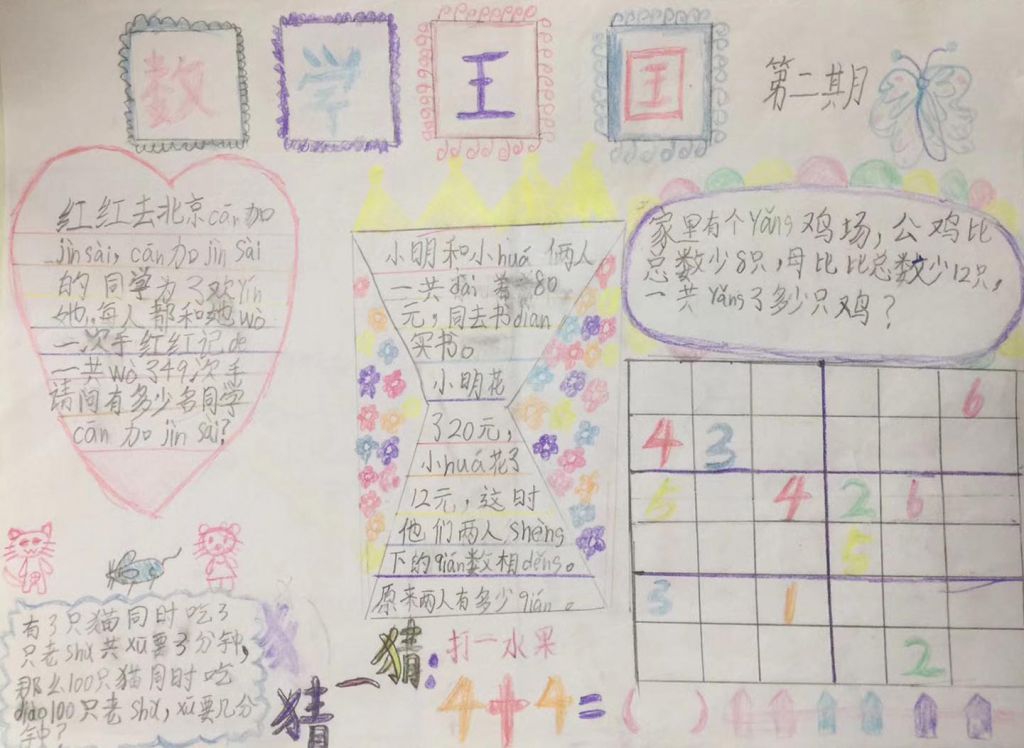 数学王国
第二期
红红去北京cān加
jìnsài,cān加jìn sài
的同学为了欢yín
她,每人都和她wò
一次手红红记de
一共wò了49次手
请问有多少名同学
cān加jìn sài?
小明和小huá俩人
一共dài着80
元,同去书diàn
买书。
小明花
了20元,
小huá花了
12元,这时
他们两人shèng
下的qián数相děng。
原来两人有多少qián。
家里有个Yǎng鸡场,公鸡比
总数少8只,母比比总数少12只,
一共Yǎng了多少只鸡?
6
4 3
5 4 2 6
5
3 1
2
有3只猫同时吃3
只老shǔ共xū要3分钟,
那么100只猫同时吃
diào100只老shǔ,xū要几分
钟?
猜一猜:
打一水果
4+4=( )